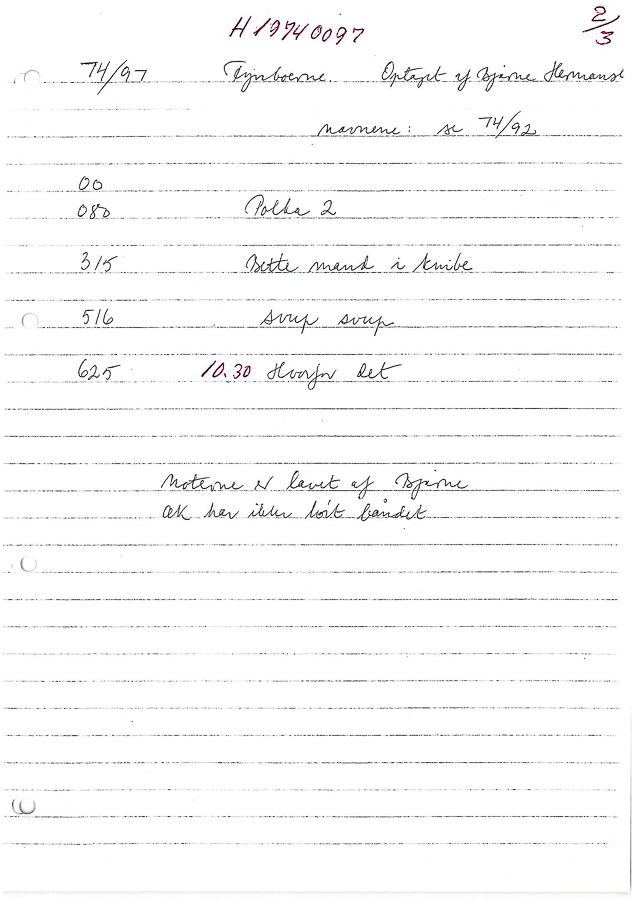 H 19740097
2/3
74/97 Fynboerne. Optaget af Bjarne Hermanse
navnene: se 74/92
00
080 Polka 2
315 Bette mand i knibe
516 svup svup
625 10.30 Hvorfor det
Noterne er lavet af Bjarne
har ikke hørt båndet